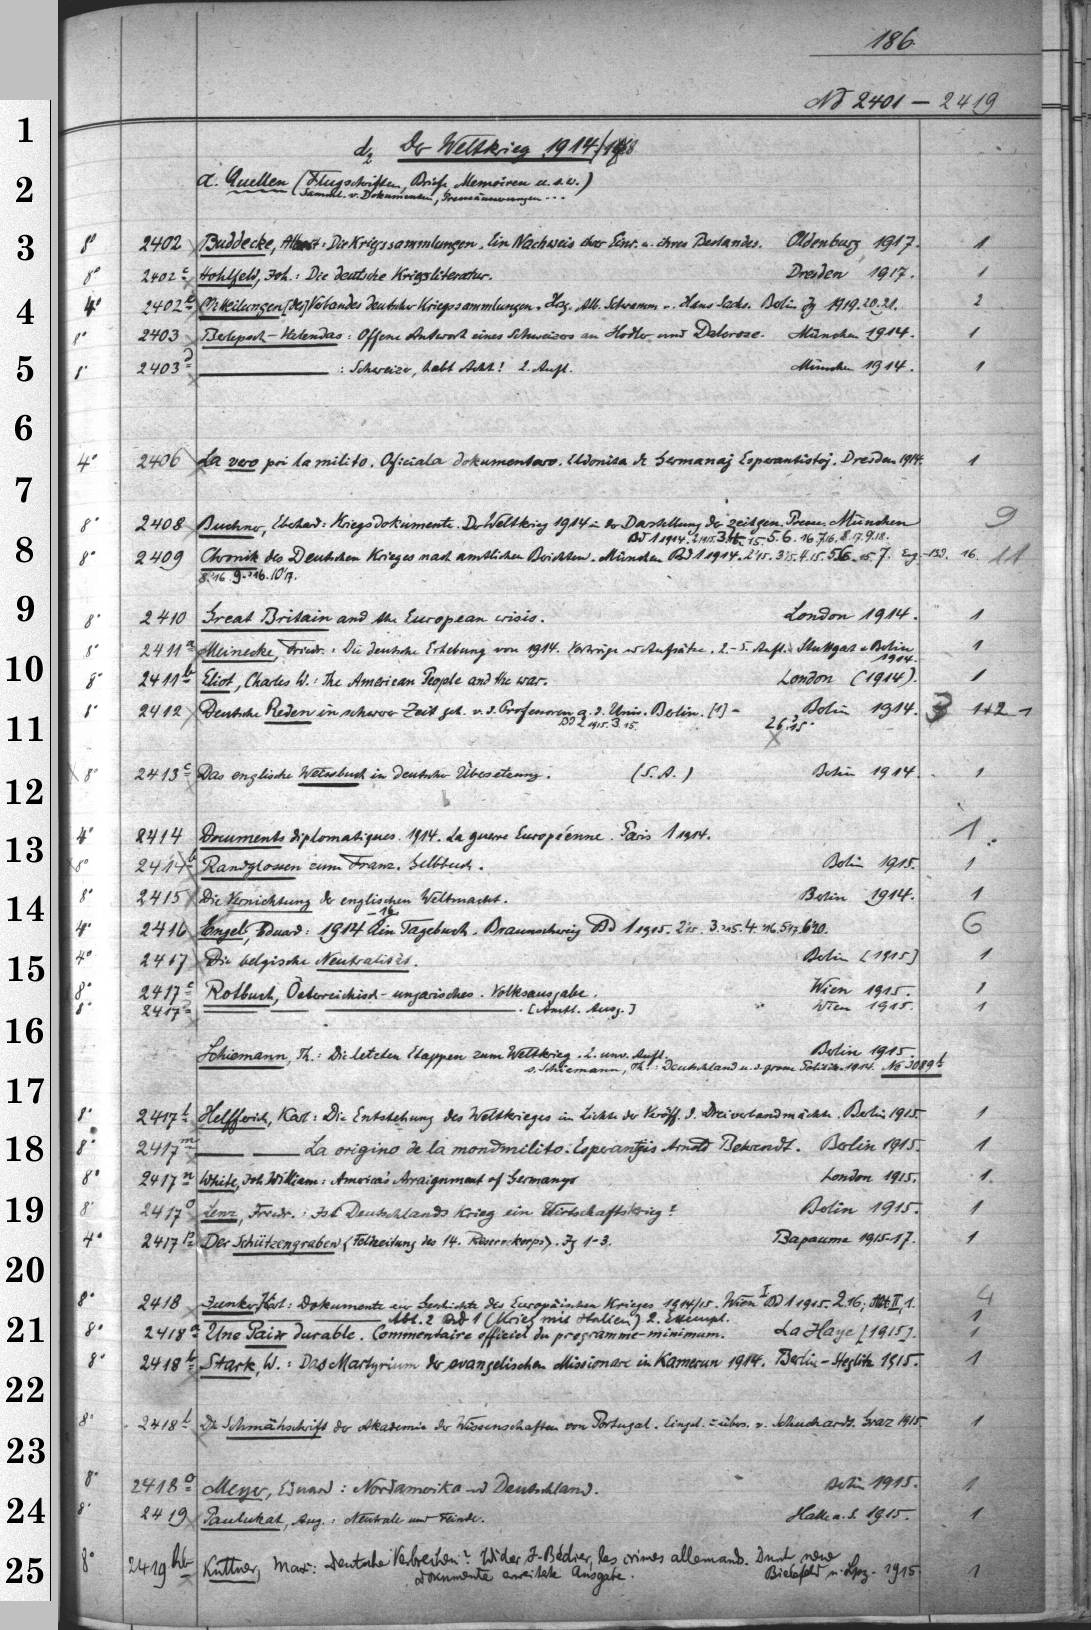 186
Nd 2401 — 2419
1
d2 Der Weltkrieg 1914/1918
2
a. Quellen (Flugschriften, Briefe, Memoiren u.s.w.)
Samml. v. Dokumenten,
3
8° 2402 Buddecke, Albert: Die Kriegssammlungen. Ein Nachweis ihrer Einr. u. ihres Bestandes. Oldenburg 1917. 1
8° 2402c Hohlfeld, Joh.: Die deutsche Kriegsliteratur. Dresden 1917. 1
4
4° 2402 Mitteilungen [des] Verbandes deutscher Kriegssammlungen. Hrsg. Alb. Schramm u. Hans Sachs. Berlin Jg 1919.20.21. 2
8° 2403 Berlepsch-Valendas: Offene Antwort eines Schweizers an Hodler und Dalcroze. München 1914. 1
5
8° 2403 : Schweizer, habt Acht! 2. Aufl. München 1914. 1
6
4° 2406 La vero pri la milito. Oficiala dokumentaro. Eldonita de Germanaj Esperantistoj. Dresden 1914. 1
7
8° 2408 Buchner, Eberhard: Kriegsdokumente. Der Weltkrieg 1914 in der Darstellung der zeitgen. Presse. München 9
Bd 1 1914. 2 1915. 3 15. 5. 6. 16. 7 16. 8. 17. 9. 18.
8
8° 2409 Chronik des Deutschen Krieges nach amtlichen Berichten. München Bd 1 1914. 2 15. 3 15. 4. 15. 7. 16. 11
8. 16. 9. 16. 10 17.
9
8° 2410 Great Britain and the European crisis. London 1914. 1
8° 2411a Meinecke, Friedr.: Die deutsche Erhebung von 1914. Vorträge u. Aufsätze. 2.-5. Aufl. Stuttgart u. Berlin 1
1914.
10
8° 2411b Eliot, Charles W.: The American People and the war. London (1914). 1
8° 2412 Deutsche Reden in schwerer Zeit geh. v. d. Professoren a. d. Univ. Berlin. [1] – Berlin 1914. 3 1+2
11
Bd 2 1915. 3. 15.
12
8° 2413c Das englische Weissbuch in deutscher Übersetzung. (S.A.) Berlin 1914. 1
13
4° 2414 Documents diplomatiques. 1914. La guerre Européenne. Paris 1 1914. 1
8° 2414b Randglossen zum Franz. Gelbbuch. Berlin 1915. 1
14
8° 2415 Die Vernichtung der englischen Weltmacht. Berlin 1914. 1
4° 2416 Engel, Eduard: 1914–19 Ein Tagebuch. Braunschweig Bd 1 1915. 2 15. 3. 15. 4. 16. 5 17. 6 20. 6
15
4° 2417 Die belgische Neutralität. Berlin [1915] 1
8° 2417c Rotbuch, Österreichisch-ungarisches. Volksausgabe. Wien 1915. 1
8° 2417 . [Amtl. Ausg.] Wien 1915. 1
16
Schiemann, Th.: Die letzten Etappen zum Weltkrieg. 2. unv. Aufl. Berlin 1915.
s. Schiemann, Th.: Deutschland u. d. grosse Politik. 1914. Nd 3089b
17
8° 2417l Helfferich, Karl: Die Entstehung des Weltkrieges im Lichte der Veröff. d. Dreiverbandmächte. Berlin 1915. 1
18
8° 2417m La origino de la mondmilito. Esperantigis Arnold Behrendt. Berlin 1915. 1
8° 2417n White, Joh. William: America's Arraignment of Germany London 1915. 1
19
8° 2417o Lenz, Friedr.: Ist Deutschlands Krieg ein Wirtschaftskrieg? Berlin 1915. 1
4° 2417p Der Schützengraben (Feldzeitung des 14. Reservekorps). Jg 1-3. Bapaume 1915-17. 1
20
8° 2418 Junker, Karl: Dokumente zur Geschichte des Europäischen Krieges 1914/15. Wien I Bd 1 1915. 2 16; II 1. 4
Abt. 2 Bd 1 (Krieg mit Italien) 2. Exempl. 1
21
8° 2418a Une Paix durable. Commentaire officiel du programme-minimum. La Haye [1915]. 1
8° 2418b Stark, W.: Das Martyrium der evangelischen Missionare in Kamerun 1914. Berlin-Steglitz 1915. 1
22
8° 2418l Die Schmähschrift der Akademie der Wissenschaften von Portugal. Eingel. u. übers. v. Schuchardt. Graz 1915 1
23
8° 2418o Meyer, Eduard: Nordamerika und Deutschland. Berlin 1915. 1
24
8° 2419 Paulukat, Aug.: Neutrale und Feinde. Halle a. S. 1915. 1
25
8° 2419 Kuttner, Max: Deutsche Verbrechen? Wider J. Bédier, les crimes allemands. Durch neue
Dokumente erweiterte Ausgabe. Bielefeld u. Lpzg. 1915 1